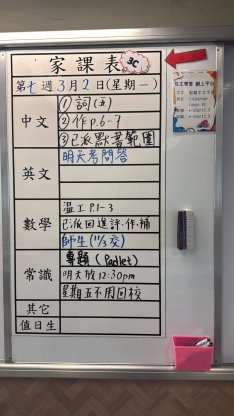 家課表
3C
第七週3月2日(星期一)
中文
①詞(五)
②作p.6-7
③已派默書範圍
英文
明天考問答
數學
溫工P.1-3
已派回進評、作、補
師生(11/3交)
常識
專題(Padlet)
明天放12:30pm
星期五不用回校
其它
值日生